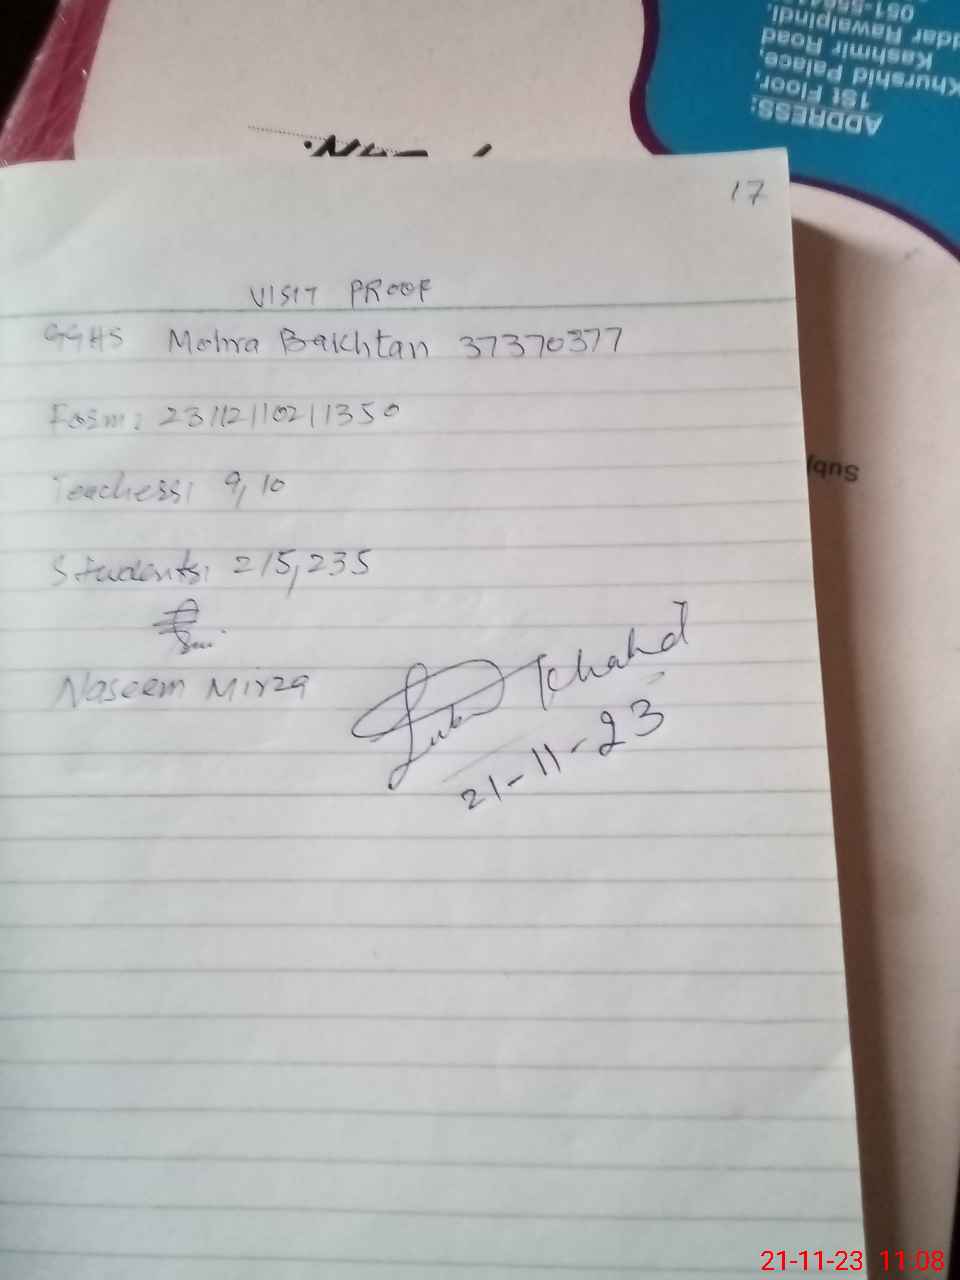 ADDRESS:
1St Floor,
Khurshid Palace,
Kashmir Road
ddar Rawalpindi.
17
VISIT PROOF
GGHS Mohra Bakhtan 37370377
Fosm: 231121102111350
Teachess: 9, 10
Students: 215, 235
Naseem Mirza
Khahd
21-11-23
Subj
21-11-23 11:08